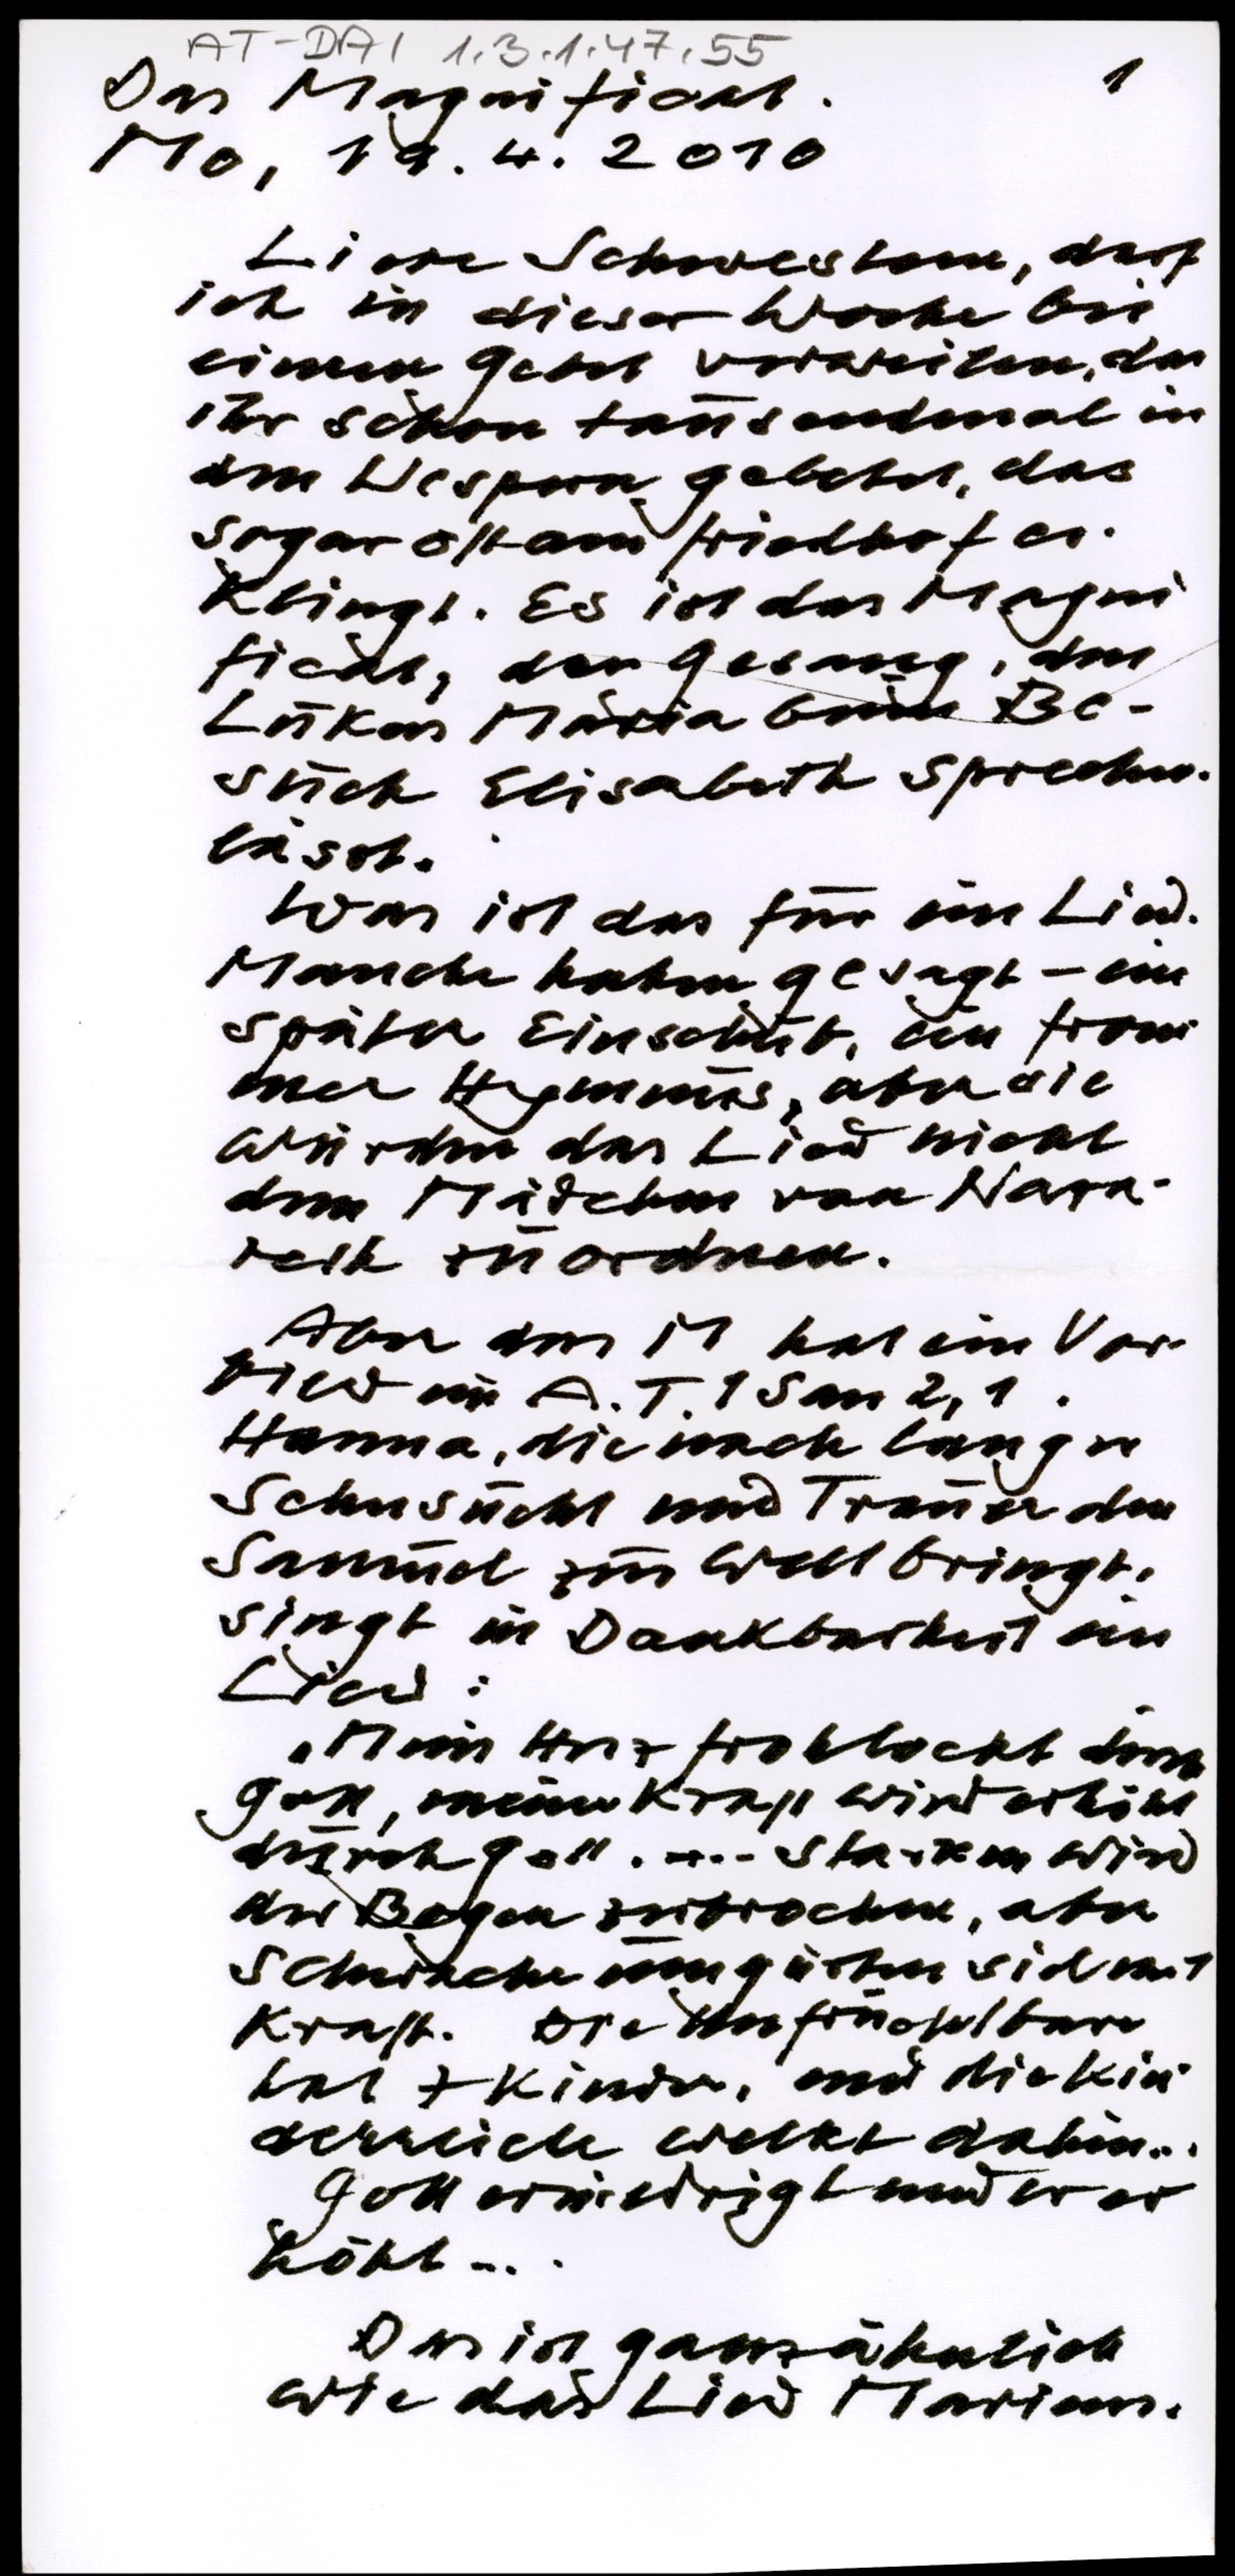 AT-DAI 1.3.1.47.55
1
Das Magnificat.
Mo, 19.4.2010
Liebe Schwestern, darf
ich in dieser Woche bei
einem Gebet verweilen, das
ihr schon tausendmal in
den Vespern gebetet, das
sogar oft am Friedhof er-
klingt. Es ist das Magni
ficat, der Gesang, den
Lukas Maria beim Be-
such Elisabeth sprechen
lässt.
Was ist das für ein Lied.
Manche haben gesagt - ein
später Einschub, ein from
mer Hymnus, aber sie
würden das Lied nicht
dem Mädchen von Naza-
reth zuordnen.
Aber das M hat ein Vor-
bild im A.T. 1 Sam 2,1.
Hanna, die nach langer
Sehnsucht und Trauer den
Samuel zur Welt bringt,
singt in Dankbarkeit ein
Lied:
"Mein Herz frohlockt durch
Gott, meine Kraft wird erhöht
durch Gott. .... Starken wird
der Bogen zerbrochen, aber
Schwache umgürten sich mit
Kraft. Die Unfruchtbare
hat 7 Kinder, und die Kin
derreiche welkt dahin...
Gott erniedrigt und er er
höht ...
Das ist ganz ähnlich
wie das Lied Mariens.